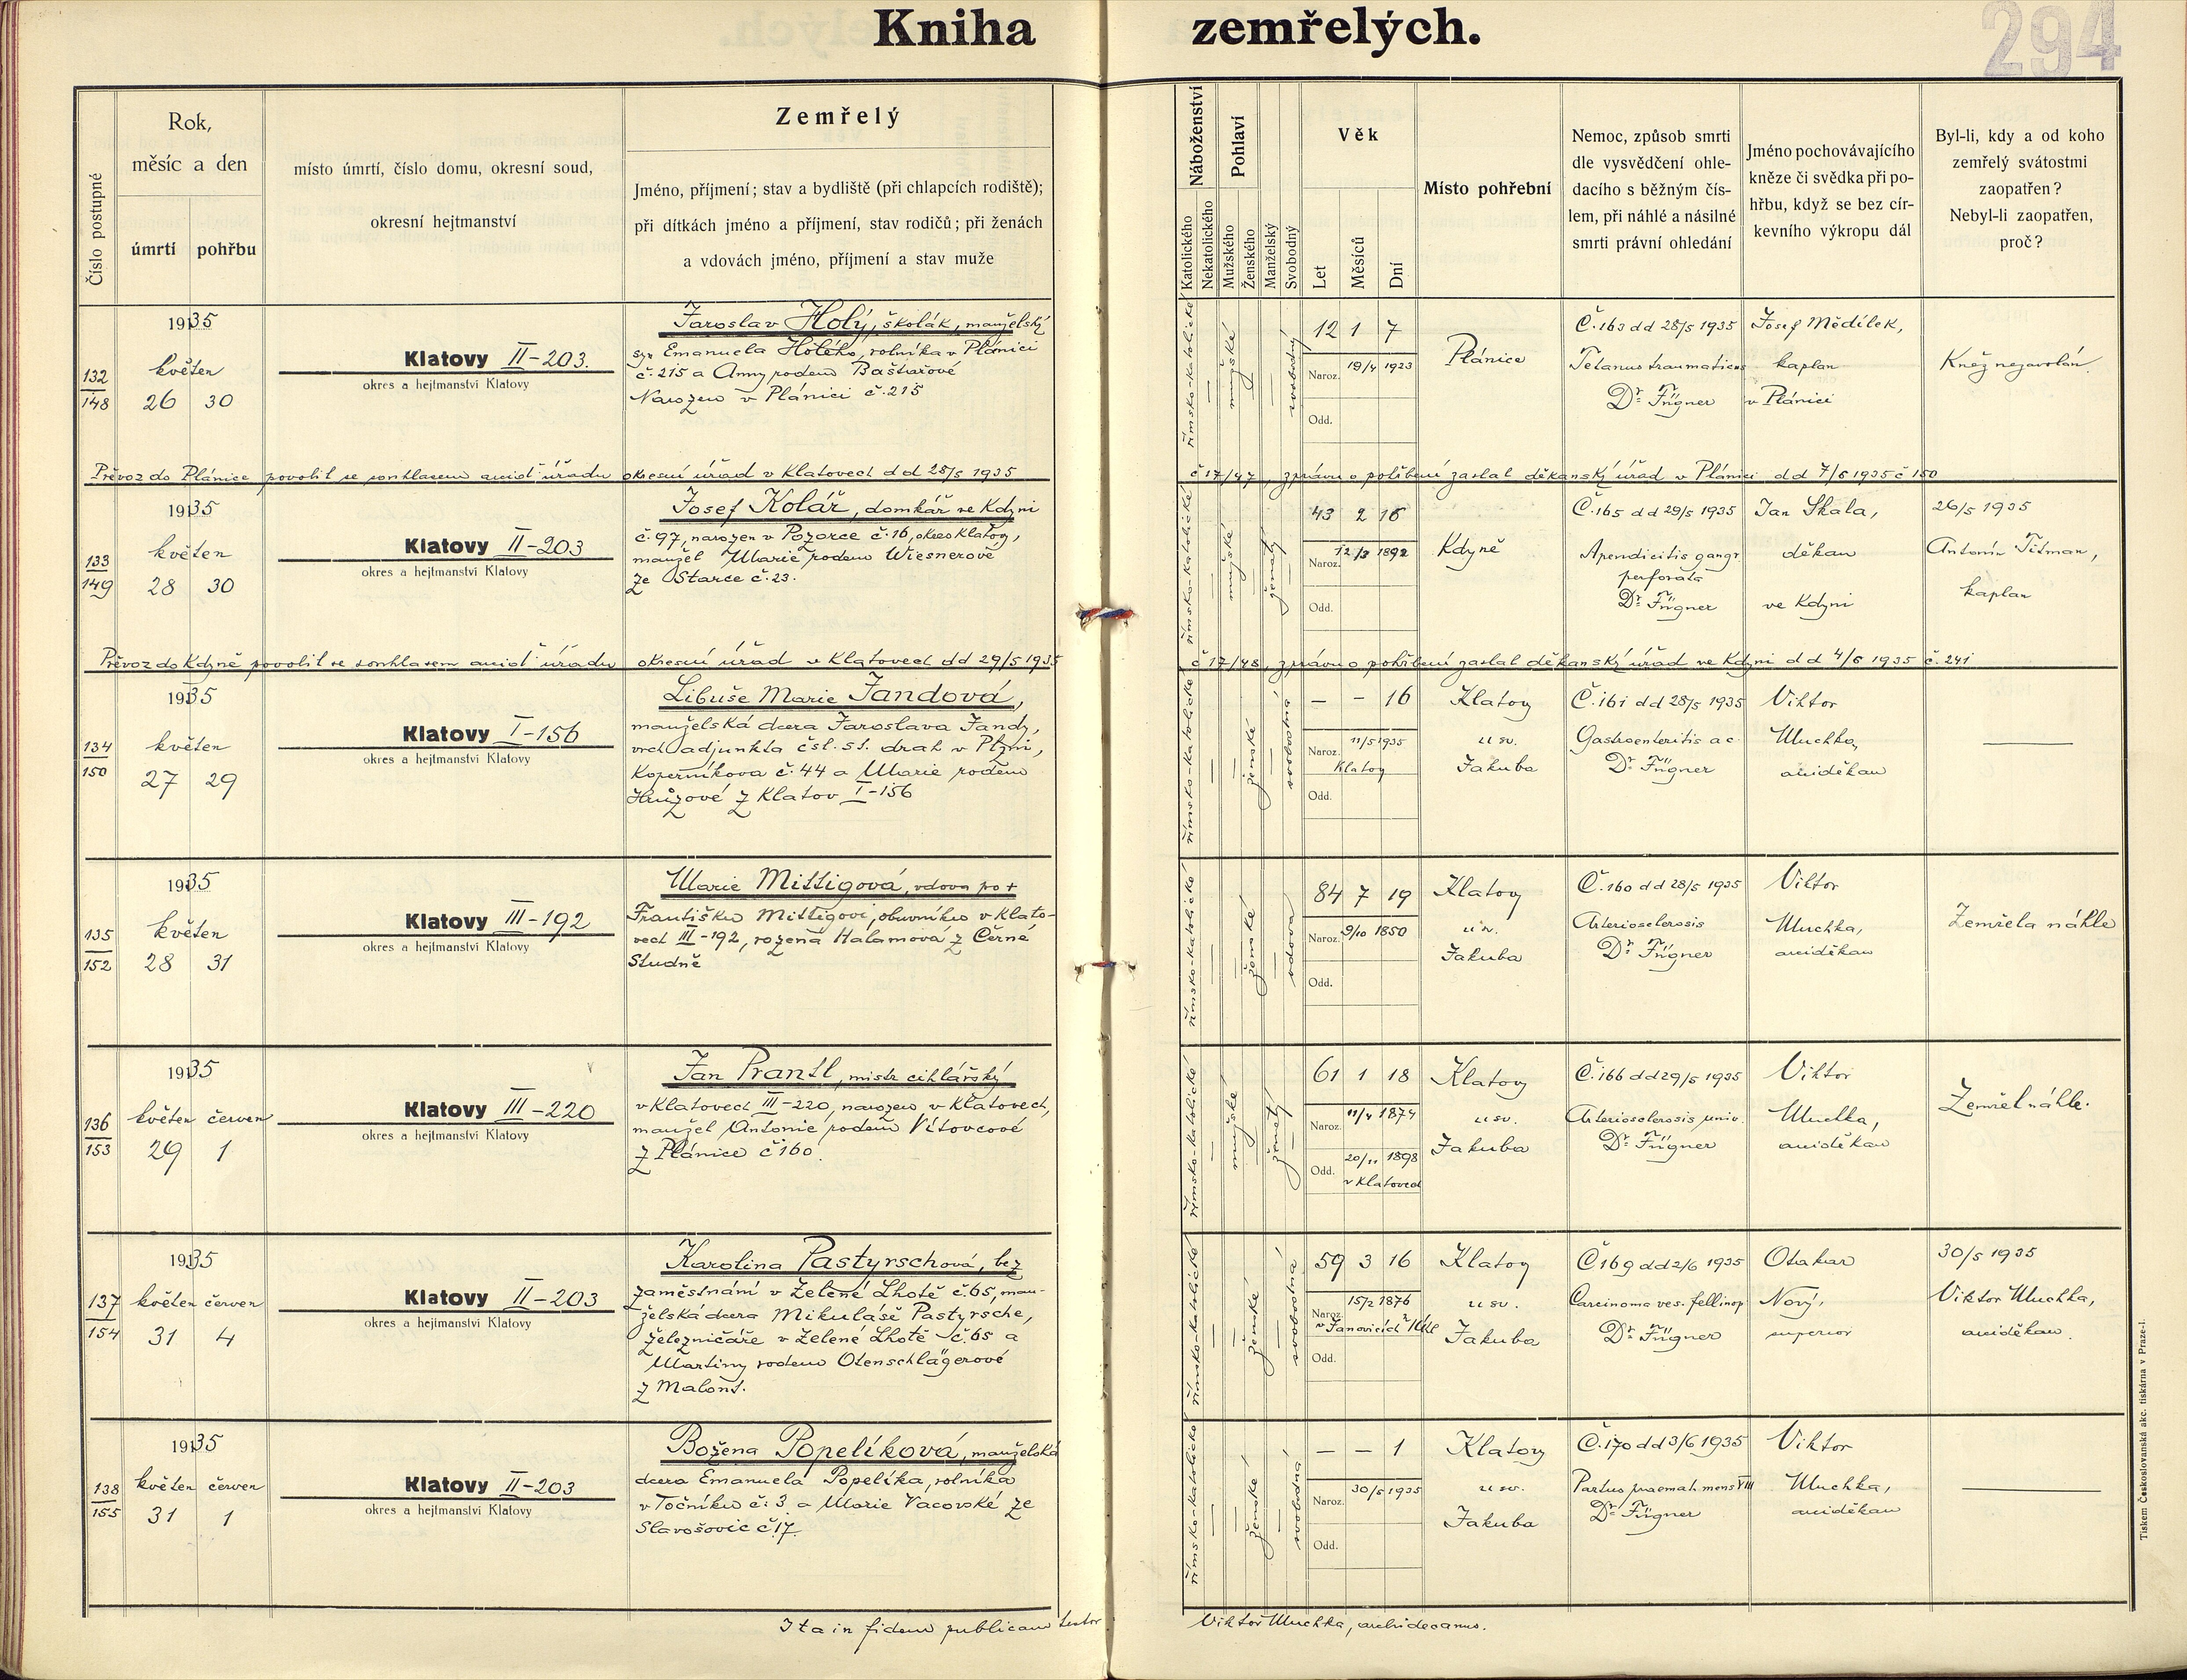 Kniha zemřelých.
294
Číslo postupné
Rok,
měsíc a den
úmrtí
pohřbu
místo úmrtí, číslo domu, okresní soud,
okresní hejtmanství
Zemřelý
Jméno, příjmení; stav a bydliště (při chlapcích rodiště);
při dítkách jméno a příjmení, stav rodičů; při ženách
a vdovách jméno, příjmení a stav muže
Náboženství
Katolického
Nekatolického
Pohlaví
Mužského
Ženského
Manželský
Svobodný
Věk
Let
Měsíců
Dní
Místo pohřební
Nemoc, způsob smrti
dle vysvědčení ohle-
dacího s běžným čís-
lem, při náhlé a násilné
smrti právní ohledání
Jméno pochovávajícího
kněze či svědka při po-
hřbu, když se bez cír-
kevního výkropu dál
Byl-li, kdy a od koho
zemřelý svátostmi
zaopatřen?
Nebyl-li zaopatřen,
proč?
132
148
1935
květen
26 30
Klatovy II-203.
okres a hejtmanství Klatovy
Jaroslav Holý, školák, manželský
syn Emanuela Holého, rolníka v Plánici
č. 215 a Anny rodem Baštařové
Narozen v Plánici č. 215
římsko-katolické
mužské
svobodný
12 1 7
Naroz. 19/4 1923
Odd.
Plánice
Č. 163 dd 28/5 1935
Tetanus traumaticus
Dr. Fügner
Josef Mědílek,
kaplan
v Plánici
Kněz nezavolán.
Převoz do Plánice povolil se souhlasem arciď. úřadu okresní úřad v Klatovech dd 28/5 1935
č 17/47, zprávu o pohřbení zaslal děkanský úřad v Plánici dd 7/6 1935 č 150
133
149
1935
květen
28 30
Klatovy II-203
okres a hejtmanství Klatovy
Josef Kolář, domkář ve Kdyni
č. 97, narozen v Pozorce č. 16, okres Klatovy,
manžel Marie rodem Wiesnerové
ze Starce č. 23.
římsko-katolické
mužské
ženatý
43 2 16
Naroz. 12/3 1892
Odd.
Kdyně
Č. 165 dd 29/5 1935
Apendicitis gangr.
perforata
Dr. Fügner
Jan Skala,
děkan
ve Kdyni
26/5 1935
Antonín Titman,
kaplan
Převoz do Kdyně povolil se souhlasem arciď. úřadu okresní úřad v Klatovech dd 29/5 1935
č 17/48, zprávu o pohřbení zaslal děkanský úřad ve Kdyni dd 4/6 1935 č. 241
134
150
1935
květen
27 29
Klatovy I-156
okres a hejtmanství Klatovy
Libuše Marie Jandová,
manželská dcera Jaroslava Jandy,
vrch. adjunkta čsl. st. drah v Plzni,
Koperníkova č. 44 a Marie rodem
Hůzové z Klatov I-156
římsko-katolické
ženské
svobodná
— — 16
Naroz. 11/5 1935
Klatovy
Odd.
Klatovy
u sv.
Jakuba
Č. 161 dd 28/5 1935
Gastroenteritis ac.
Dr. Fügner
Viktor
Muchka,
arciděkan
135
152
1935
květen
28 31
Klatovy III-192
okres a hejtmanství Klatovy
Marie Mittigová, vdova po +
Františku Mittigovi, obuvníku v Klato-
vech III-192, rozená Halamová z Černé
Studně
římsko-katolické
ženské
vdova
84 7 19
Naroz. 9/10 1850
Odd.
Klatovy
u sv.
Jakuba
Č. 160 dd 28/5 1935
Arteriosclerosis
Dr. Fügner
Viktor
Muchka,
arciděkan
Zemřela náhle
136
153
1935
květen červen
29 1
Klatovy III-220
okres a hejtmanství Klatovy
Jan Prantl, mistr cihlářský
v Klatovech III-220, narozen v Klatovech,
manžel Antonie rodem Vítovcové
z Plánice č 160.
římsko-katolické
mužské
ženatý
61 1 18
Naroz. 11/4 1874
Odd. 20/11 1898
v Klatovech
Klatovy
u sv.
Jakuba
Č. 166 dd 29/5 1935
Arteriosclerosis univ.
Dr. Fügner
Viktor
Muchka,
arciděkan
Zemřel náhle.
137
154
1935
květen červen
31 4
Klatovy II-203
okres a hejtmanství Klatovy
Karolina Pastyrschová, bez
zaměstnání v Zelené Lhotě č. 65, man-
želská dcera Mikuláše Pastyrsche,
železničáře v Zelené Lhotě č. 65 a
Martiny rodem Otenschlägerové
z Malont.
římsko-katolické
ženské
svobodná
59 3 16
Naroz. 15/2 1876
v Janovicích
Odd.
Klatovy
u sv.
Jakuba
Č 169 dd 2/6 1935
Carcinoma ves. fellinop
Dr. Fügner
Otakar
Nový,
superior
30/5 1935
Viktor Muchka,
arciděkan.
138
155
1935
květen červen
31 1
Klatovy II-203
okres a hejtmanství Klatovy
Božena Popelíková, manželská
dcera Emanuela Popelíka, rolníka
v Točníku č. 3 a Marie Vacovské ze
Slavošovic č. 17.
římsko-katolické
ženské
svobodná
— — 1
Naroz. 30/5 1935
Odd.
Klatovy
u sv.
Jakuba
Č. 170 dd 3/6 1935
Partus praemat. mens VIII
Dr. Fügner
Viktor
Muchka,
arciděkan
Ita in fidem publicam testor Viktor Muchka, archidecanus.
Tiskem Českoslovanská akc. tiskárna v Praze-I.